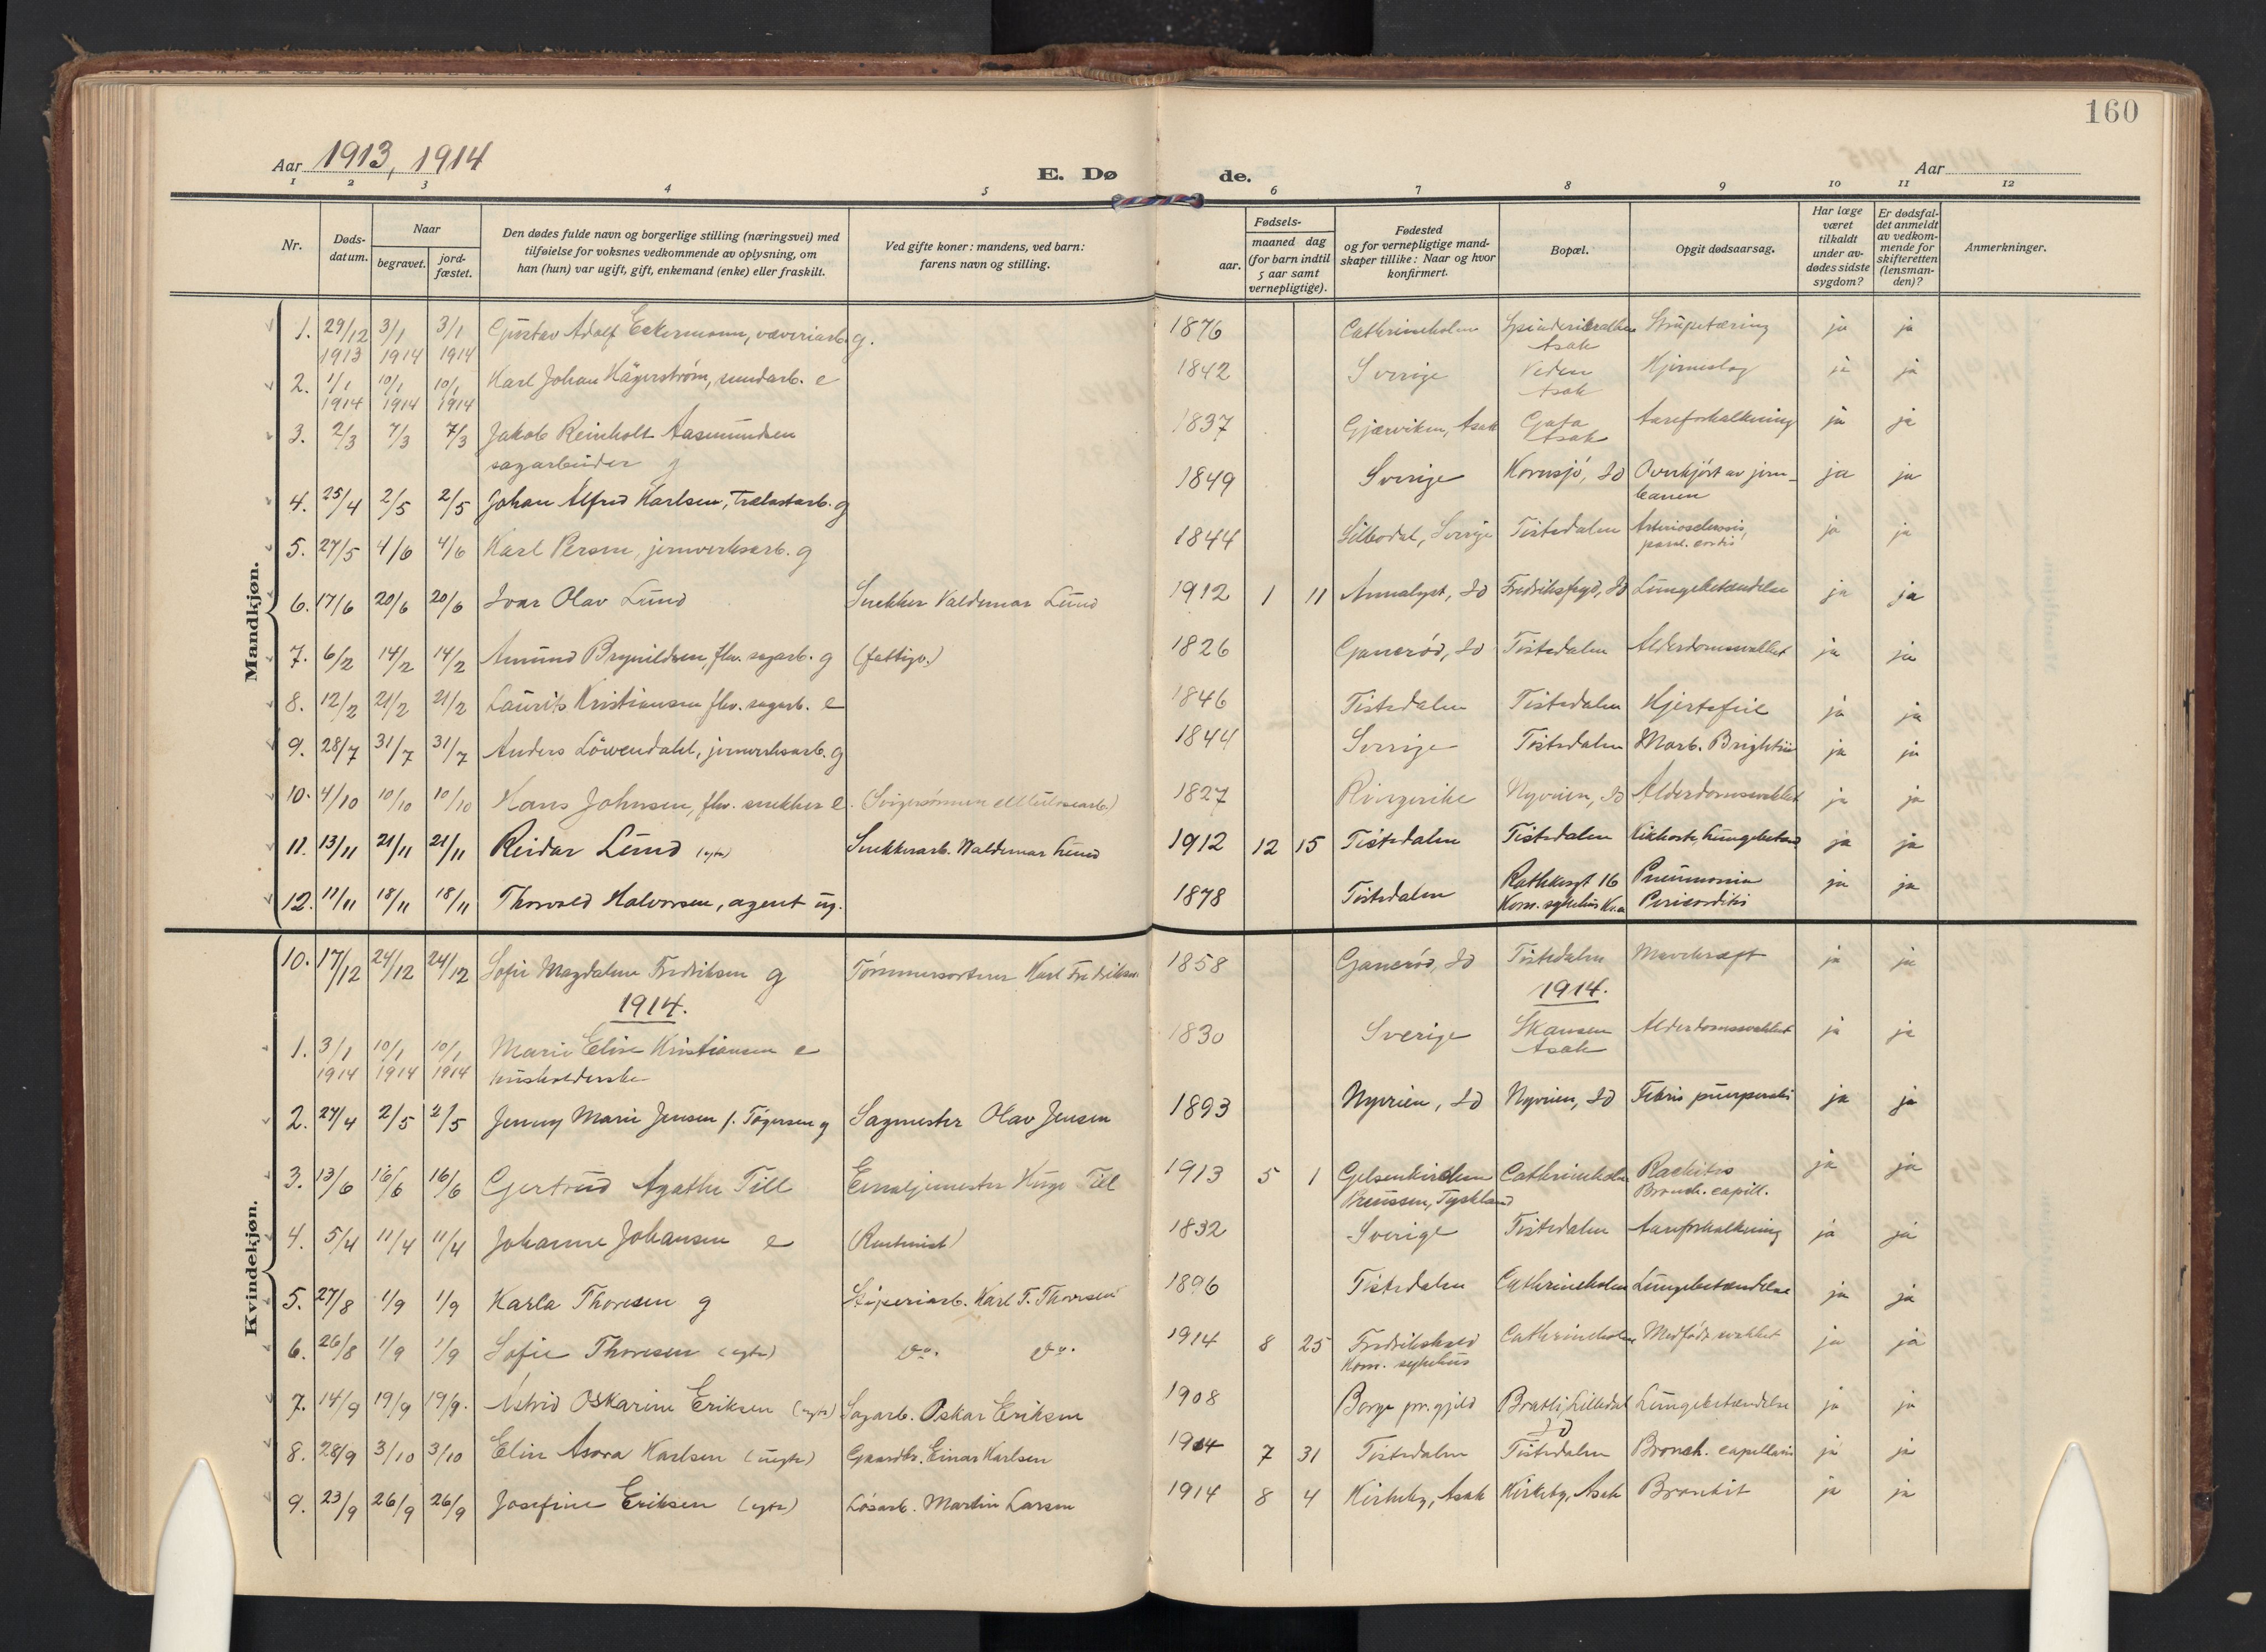 160
Aar 1913, 1914
E. Dø de.
Aar
1 2 3 4 5 6 7 8 9 10 11 12
Nr.
Døds-
datum.
Naar
begravet.
jord-
fæstet.
Den dødes fulde navn og borgerlige stilling (næringsvei) med
tilføielse for voksnes vedkommende av oplysning, om
han (hun) var ugift, gift, enkemand (enke) eller fraskilt.
Ved gifte koner: mandens, ved barn:
farens navn og stilling.
Fødsels-
aar.
maaned dag
(for barn indtil
5 aar samt
vernepligtige).
Fødested
og for vernepligtige mand-
skaper tillike: Naar og hvor
konfirmert.
Bopæl.
Opgit dødsaarsag.
Har læge
været
tilkaldt
under av-
dødes sidste
sygdom?
Er dødsfal-
det anmeldt
av vedkom-
mende for
skifteretten
(lensman-
den)?
Anmerkninger.
Mandkjøn.
1. 29/12 3/1 3/1 Gustav Adolf Eckermann, væveriarb. g. 1876 Cathrineholm Strupetæring ja ja
1913 1914 1914 Asak
2. 1/1 10/1 10/1 Karl Johan Hägerström, sundarb. e 1842 Sverige Veden Hjerneslag ja ja
1914 1914 1914 Asak
3. 2/3 7/3 7/3 Jakob Reinholt Aasmundsen 1837 Gjærviken, Asak Gata Aareforkalkning ja ja
sagarbeider g Asak
4. 25/4 2/5 2/5 Johan Alfred Karlsen, trælastarb. g 1849 Sverige Kornsjö, Id Overkjört av jern- ja ja
banen
5. 27/5 4/6 4/6 Karl Persen, jernverksarb. g 1844 Silbodal, Sverige Tistedalen Arteriosclerosis, ja ja
paral. cordis
6. 17/6 20/6 20/6 Ivar Olav Lund Snekker Valdemar Lund 1912 1 11 Annalyst, Id Fredriksfryd, Id Lungebetændelse ja ja
7. 6/2 14/2 14/2 Amund Brynildsen, fhv. sagarb. g (fattigv.) 1826 Ganerød, Id Tistedalen Alderdomssvakhet ja ja
8. 12/2 21/2 21/2 Laurits Kristiansen fhv. sagarb. e 1846 Tistedalen Tistedalen Hjertefeil ja ja
9. 28/7 31/7 31/7 Anders Löwendahl, jernverksarb. g 1844 Sverige Tistedalen Morb. Brightii ja ja
10. 4/10 10/10 10/10 Hans Johnsen, fhv. snekker e. (Svigersönnen cellulosearb.) 1827 Ringerike Nyveien, Id Alderdomssvakhet ja ja
11. 13/11 21/11 21/11 Reidar Lund (egte) Snekkerarb. Valdemar Lund 1912 12 15 Tistedalen Tistedalen Kikhoste, Lungebetænd ja ja
12. 11/11 18/11 18/11 Thorvald Halvorsen, agent ug. 1878 Tistedalen Rathkesgt 16 Pneumonia ja ja
Kom. sykehus Kr.a Pericarditis
Kvindekjøn.
10. 17/12 24/12 24/12 Sofie Magdalene Fredriksen g Tømmersorterer Karl Fredriksen 1858 Ganerød, Id Tistedalen Mavekræft ja ja
1914. 1914.
1. 3/1 10/1 10/1 Marie Elise Kristiansen e 1830 Sverige Skansen Alderdomssvakhet ja ja
1914 1914 1914 husholderske Asak
2. 27/4 2/5 2/5 Jenny Marie Jensen f. Tøgersen g Sagmester Olav Jensen 1893 Nyveien, Id Nyveien, Id Febris puerperalis ja ja
3. 13/6 16/6 16/6 Gertrud Agathe Till Emaljemester Hugo Till 1913 5 1 Gelsenkirchen Cathrineholm Rachitis ja ja
Preussen, Tyskland Bronch. capill.
4. 5/4 11/4 11/4 Johanne Johansen e 1832 Sverige Tistedalen Aareforkalkning ja ja
5. 27/8 1/9 1/9 Karla Thoresen g Støperiarb. Karl T. Thoresen 1896 Tistedalen Cathrineholm Lungebetændelse ja ja
6. 26/8 1/9 1/9 Sofie Thoresen (egte) do. do. 1914 8 25 Fredrikshald Cathrineholm Medfødt svakhet ja ja
Kom. sykehus
7. 14/9 19/9 19/9. Astrid Oskarine Eriksen (egte) Sagarb. Oskar Eriksen 1908 Borge pr.gjeld Bratli, Lilledal Lungebetændelse ja ja
Id
8. 28/9 3/10 3/10 Elin Asora Karlsen (uegte) Gaardbr. Einar Karlsen 1914 7 31 Tistedalen Tistedalen Bronch. capillaris ja ja
9. 23/9 26/9 26/9 Josefine Eriksen (egte) Løsarb. Martin Larsen 1914 8 4 Kirkeby, Asak Kirkeby, Asak Bronkit ja ja